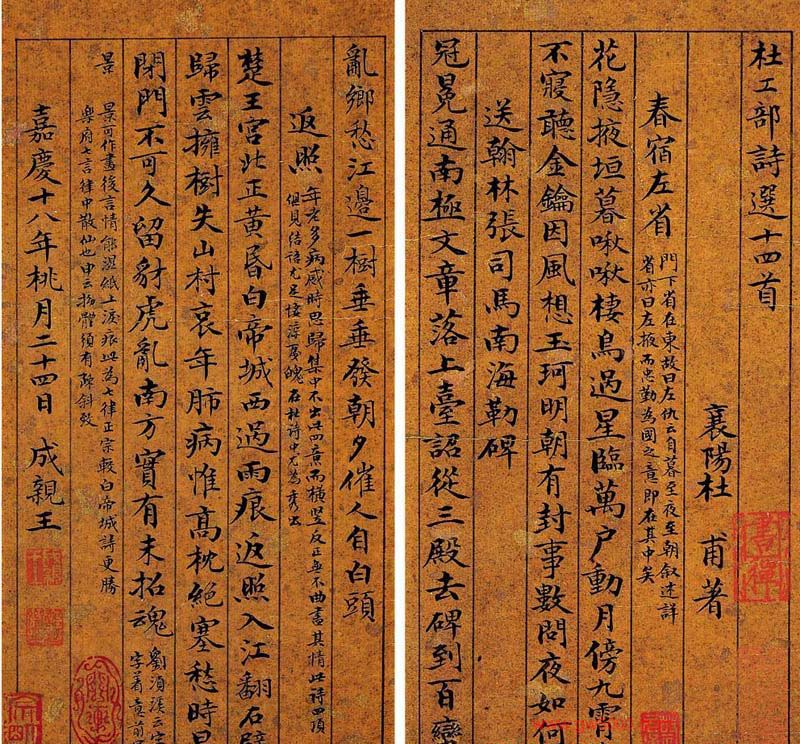 杜工部詩選十四首
襄陽杜 甫著
春宿左省
門下省在東故曰左仇云自暮至夜至朝敘述詳
省亦曰左掖而忠勤為國之意即在其中矣
花隱掖垣暮啾啾棲鳥過星臨萬戶動月傍九霄
不寢聽金鑰因風想玉珂明朝有封事數問夜如何
送翰林張司馬南海勒碑
冠冕通南極文章落上臺詔從三殿去碑到百蠻
亂鄉愁江邊一樹垂垂發朝夕催人自白頭
返照
年老多病感時思歸集中不出此四意而橫豎反正無不曲盡其情此詩四項
俱見結語尤足悽魄在杜詩中尤為秀出
楚王宮北正黃昏白帝城西過雨痕返照入江翻石壁
歸雲擁樹失山村衰年肺病惟高枕絕塞愁時早
閉門不可久留豺虎亂南方實有未招魂
劉須溪云
字著黃前
景
景可作畫後言情能濕紙上淚痕此為七律正宗較白帝城詩更勝
樂府七言律中散仙也申云拗體須有斜致
嘉慶十八年桃月二十四日 成親王